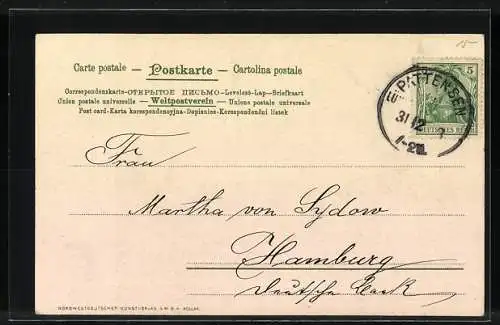 Carte postale — Postkarte — Cartolina postale
Correspondenzkarte-ОТКРЫТОЕ ПИСЬМО-Levelező-Lap-Briefkaart
Union postale universelle — Weltpostverein — Unione postale universale
Post card-Karta korespondencyjna-Dopisnice-Korespondenční lístek
5
E PATTENSEN
31 12
1-2N.
DEUTSCHES REICH
Frau
Martha von Sydow
Hamburg
Deutsche
NORDWESTDEUTSCHER KUNSTVERLAG